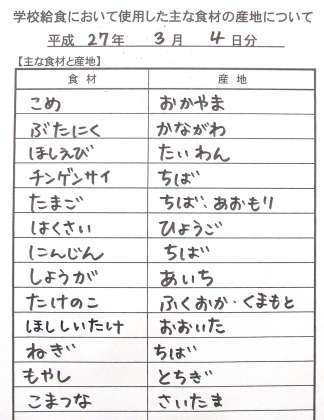 学校給食において使用した主な食材の産地について
平成 27年 3月 4日分
【主な食材と産地】
食材 産地
こめ おかやま
ぶたにく かながわ
ほしえび たいわん
チンゲンサイ ちば
たまご ちば、あおもり
はくさい ひょうご
にんじん ちば
しょうが あいち
たけのこ ふくおか・くまもと
ほししいたけ おおいた
ねぎ ちば
もやし とちぎ
こまつな さいたま